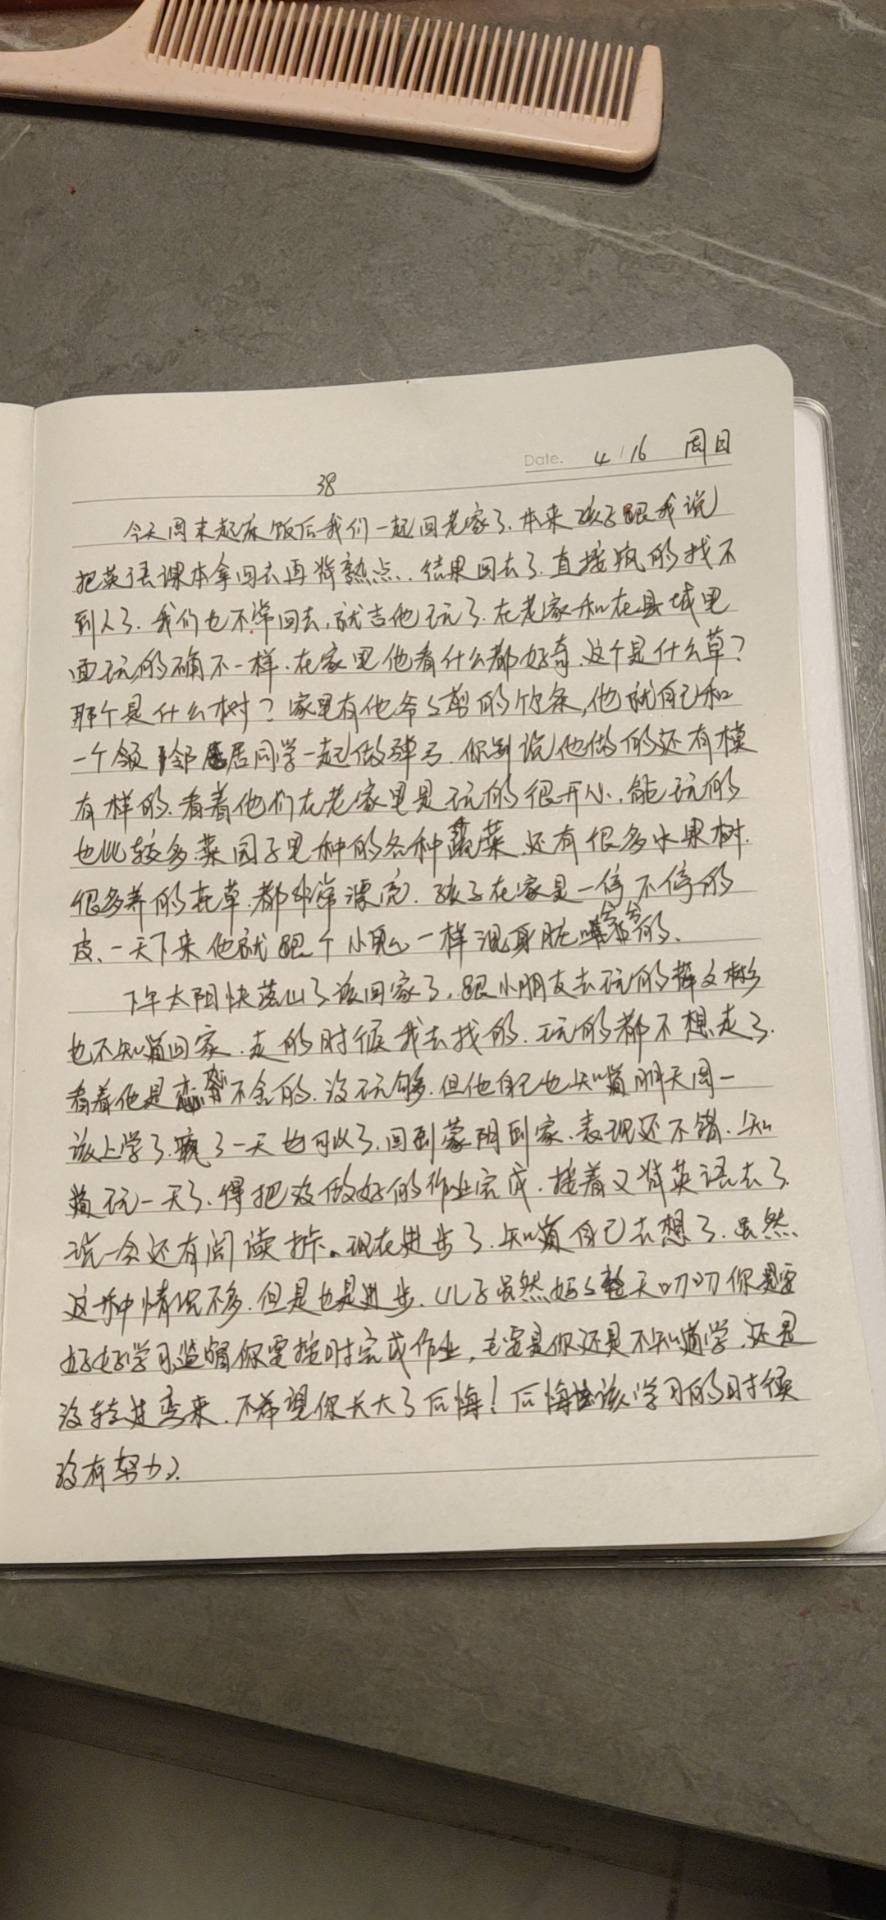 Date. 4/16 周日
38
今天周末起床饭后我们一起回老家了、本来孩子跟我说
把英语课本拿回去再背熟点、结果回去了、直接疯的找不
到人了、我们也不常回去,就由他玩了、在老家和在县城里
面玩的确不一样、在家里他看什么都好奇、这个是什么草?
那个是什么树?家里有他爷爷剪的竹条,他就自己和
一个领 邻居同学一起做弹弓、你别说他做的还有模
有样的、看着他们在老家里是玩的很开心、能玩的
也比较多、菜园子里种的各种蔬菜、还有很多水果树、
很多养的花草、都非常漂亮、孩子在家是一停不停的
皮、一天下来他就跟个小鬼一样浑身脏兮兮的、
下午太阳快落山了该回家了,跟小朋友去玩的
也不知道回家、走的时候我去找的、玩的都不想走了、
看着他是恋恋不舍的、没玩够、但他自己也知道明天周一
该上学了、疯了一天也可以了、回到蒙阴到家、表现还不错、知
道玩一天了、得把没做好的作业完成、接着又背英语去了
说一会还有阅读打卡。现在进步了、知道自己去想了、虽然
这种情况不多、但是也是进步、儿子虽然妈妈整天叨叨你是要
好好学习,监督你要按时完成作业,主要是你还是不知道学、还是
没转过弯来、不希望你长大了后悔!后悔应该学习的时候
没有努力、